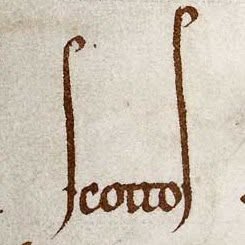 ſcottoſ